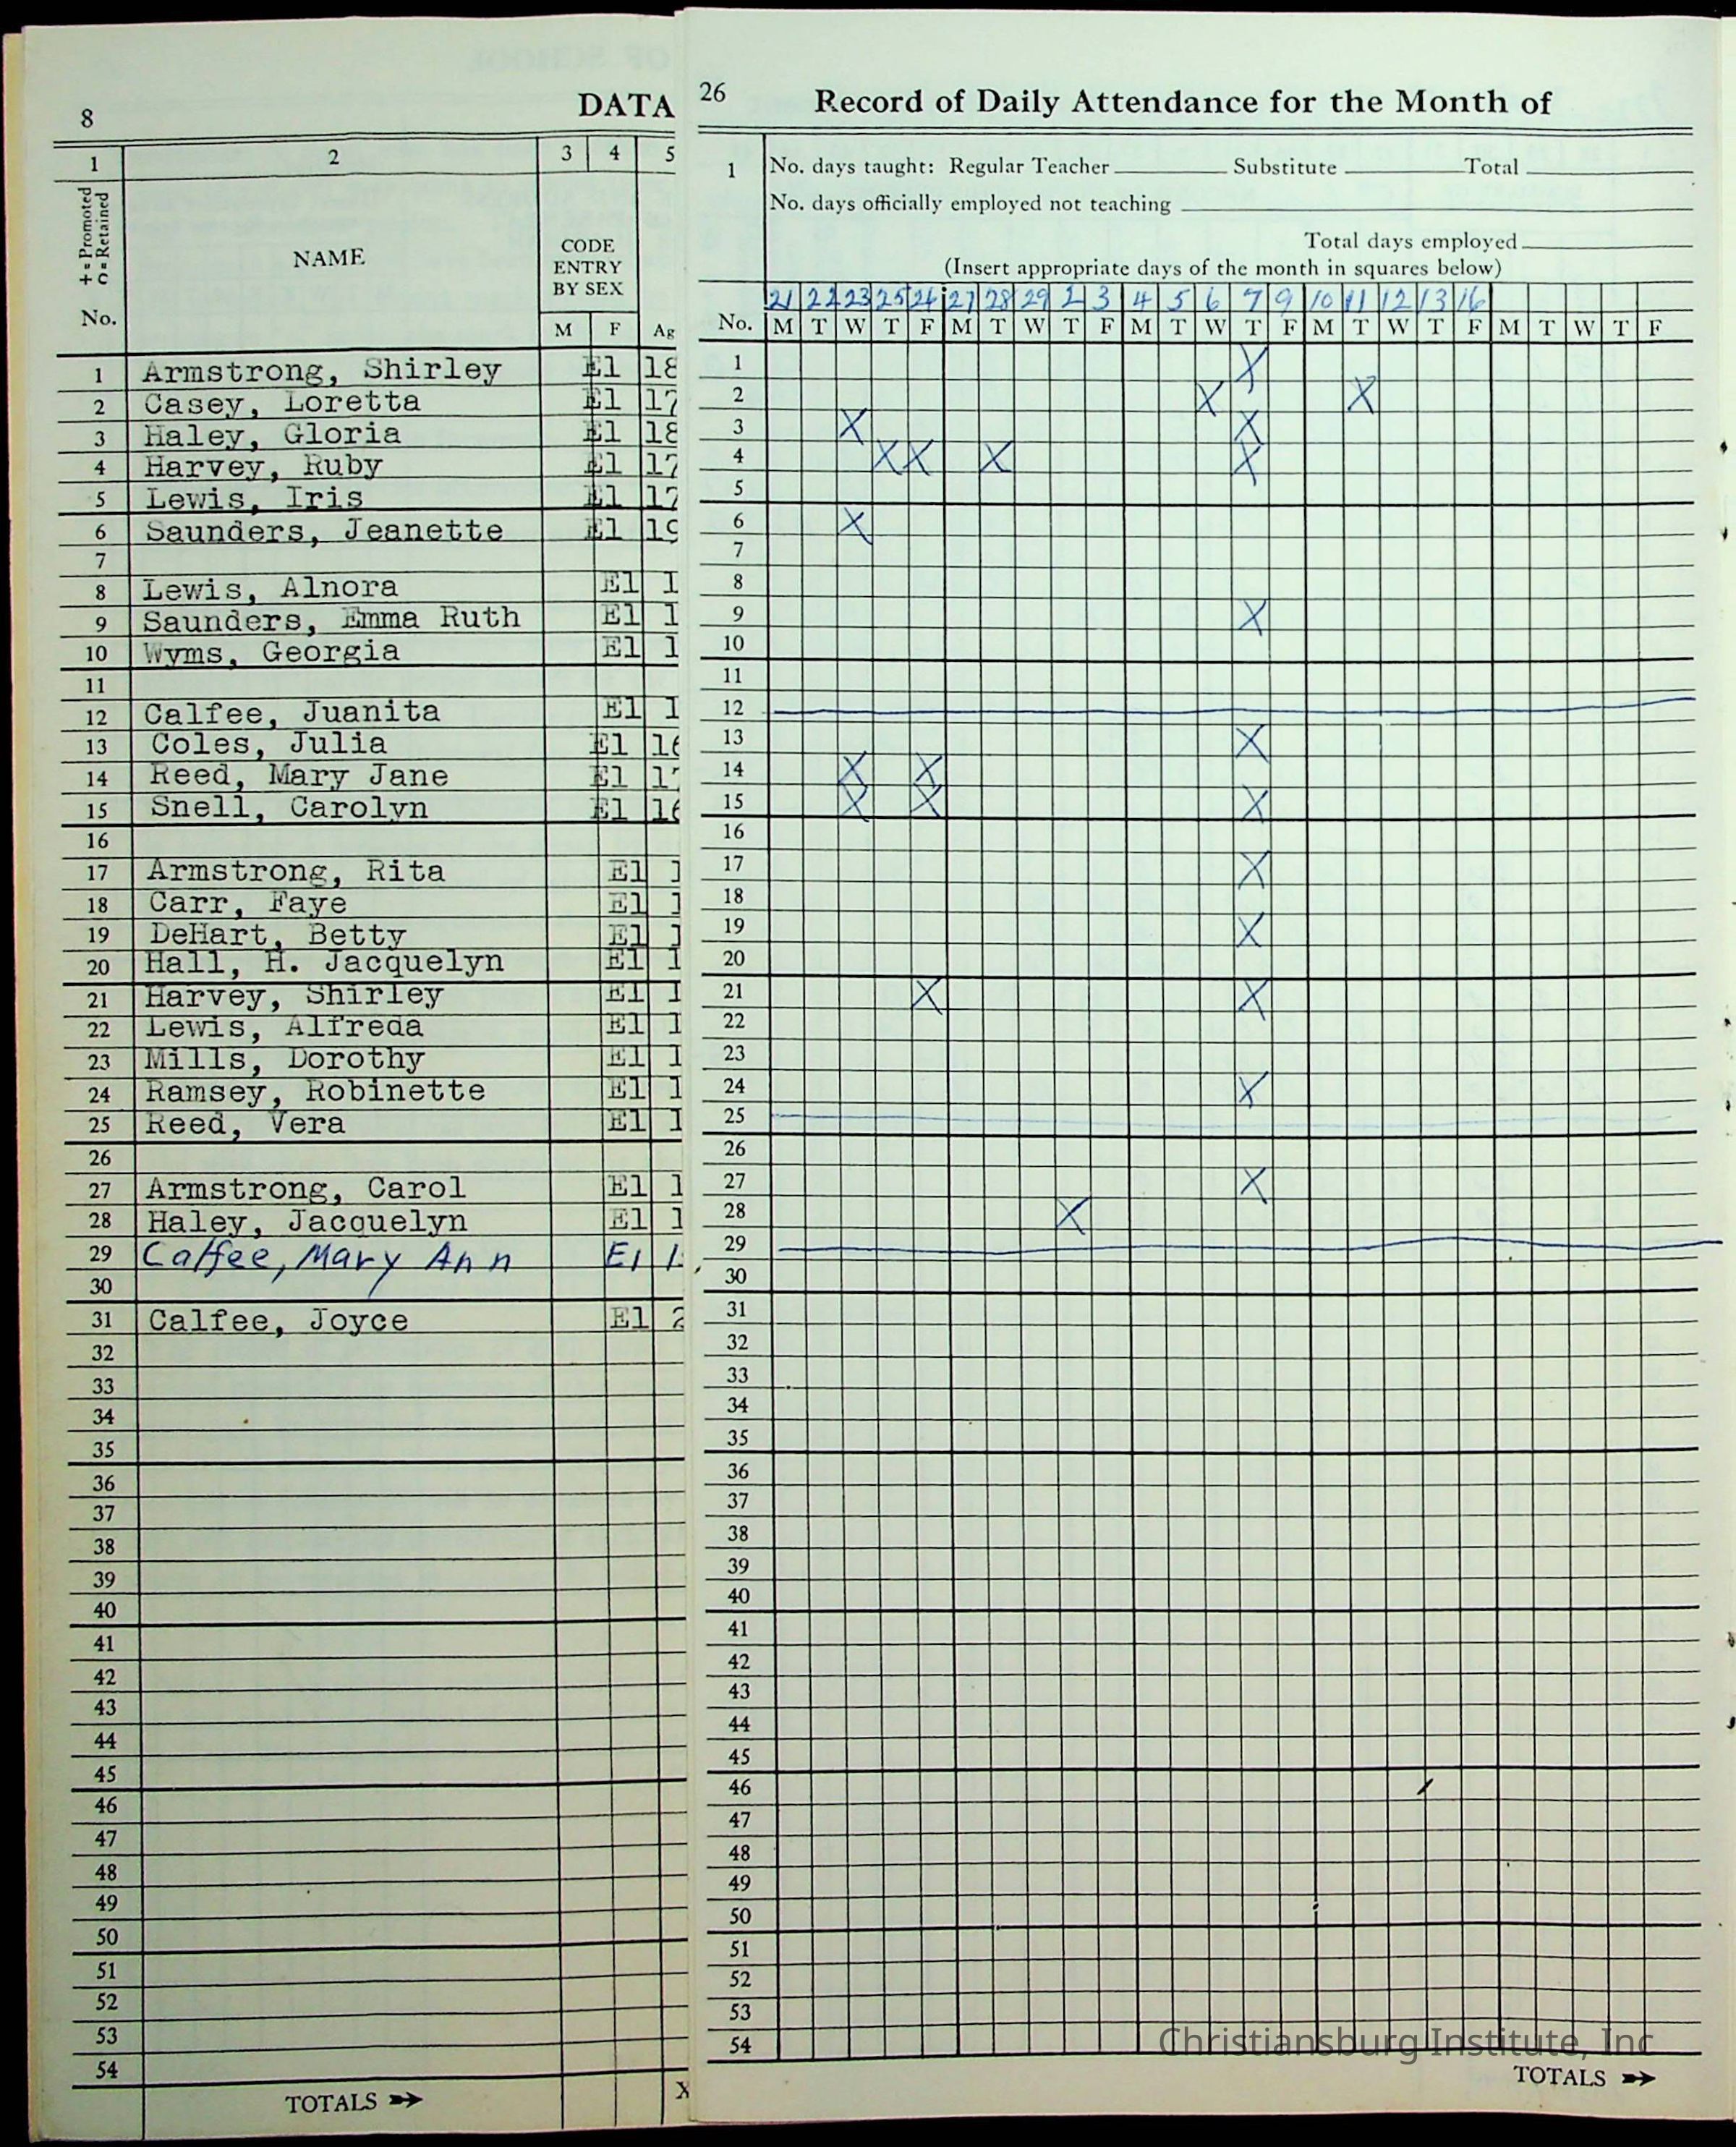 8
DATA
1 2 3 4 5
+ = Promoted
∩ = Retained
No.
NAME
CODE
ENTRY
BY SEX
M F Ag
1 Armstrong, Shirley El 18
2 Casey, Loretta El 17
3 Haley, Gloria El 18
4 Harvey, Ruby El 17
5 Lewis, Iris El 17
6 Saunders, Jeanette El 19
7
8 Lewis, Alnora El 1
9 Saunders, Emma Ruth El 1
10 Wyms, Georgia El 1
11
12 Calfee, Juanita El 1
13 Coles, Julia El 16
14 Reed, Mary Jane El 17
15 Snell, Carolyn El 16
16
17 Armstrong, Rita El 1
18 Carr, Faye El 1
19 DeHart, Betty El 1
20 Hall, H. Jacquelyn El 1
21 Harvey, Shirley El 1
22 Lewis, Alfreda El 1
23 Mills, Dorothy El 1
24 Ramsey, Robinette El 1
25 Reed, Vera El 1
26
27 Armstrong, Carol El 1
28 Haley, Jacquelyn El 1
29 Calfee, Mary Ann El 1
30
31 Calfee, Joyce El 2
32
33
34
35
36
37
38
39
40
41
42
43
44
45
46
47
48
49
50
51
52
53
54
TOTALS X
26
Record of Daily Attendance for the Month of
1 No. days taught: Regular Teacher Substitute Total
No. days officially employed not teaching
Total days employed
(Insert appropriate days of the month in squares below)
21 22 23 25 26 27 28 29 2 3 4 5 6 7 9 10 11 12 13 16
No. M T W T F M T W T F M T W T F M T W T F M T W T F
1 X
2 X X
3 X X
4 X X X X
5
6 X
7
8
9 X
10
11
12
13 X
14 X X
15 X X X
16
17 X
18
19 X
20
21 X X
22
23
24 X
25
26
27 X
28 X
29
30
31
32
33
34
35
36
37
38
39
40
41
42
43
44
45
46
47
48
49
50
51
52
53
54
Christiansburg Institute, Inc
TOTALS